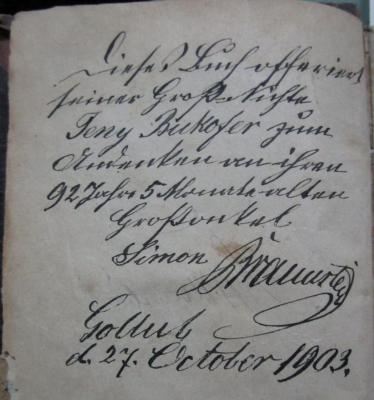 Dieses Buch offeriert
seiner Groß-Nichte
Jeny Bukofzer zum
Andenken an ihren
92 Jahre 5 Monate alten
Großonkel
Simon
Gollub
d. 27. October 1903.